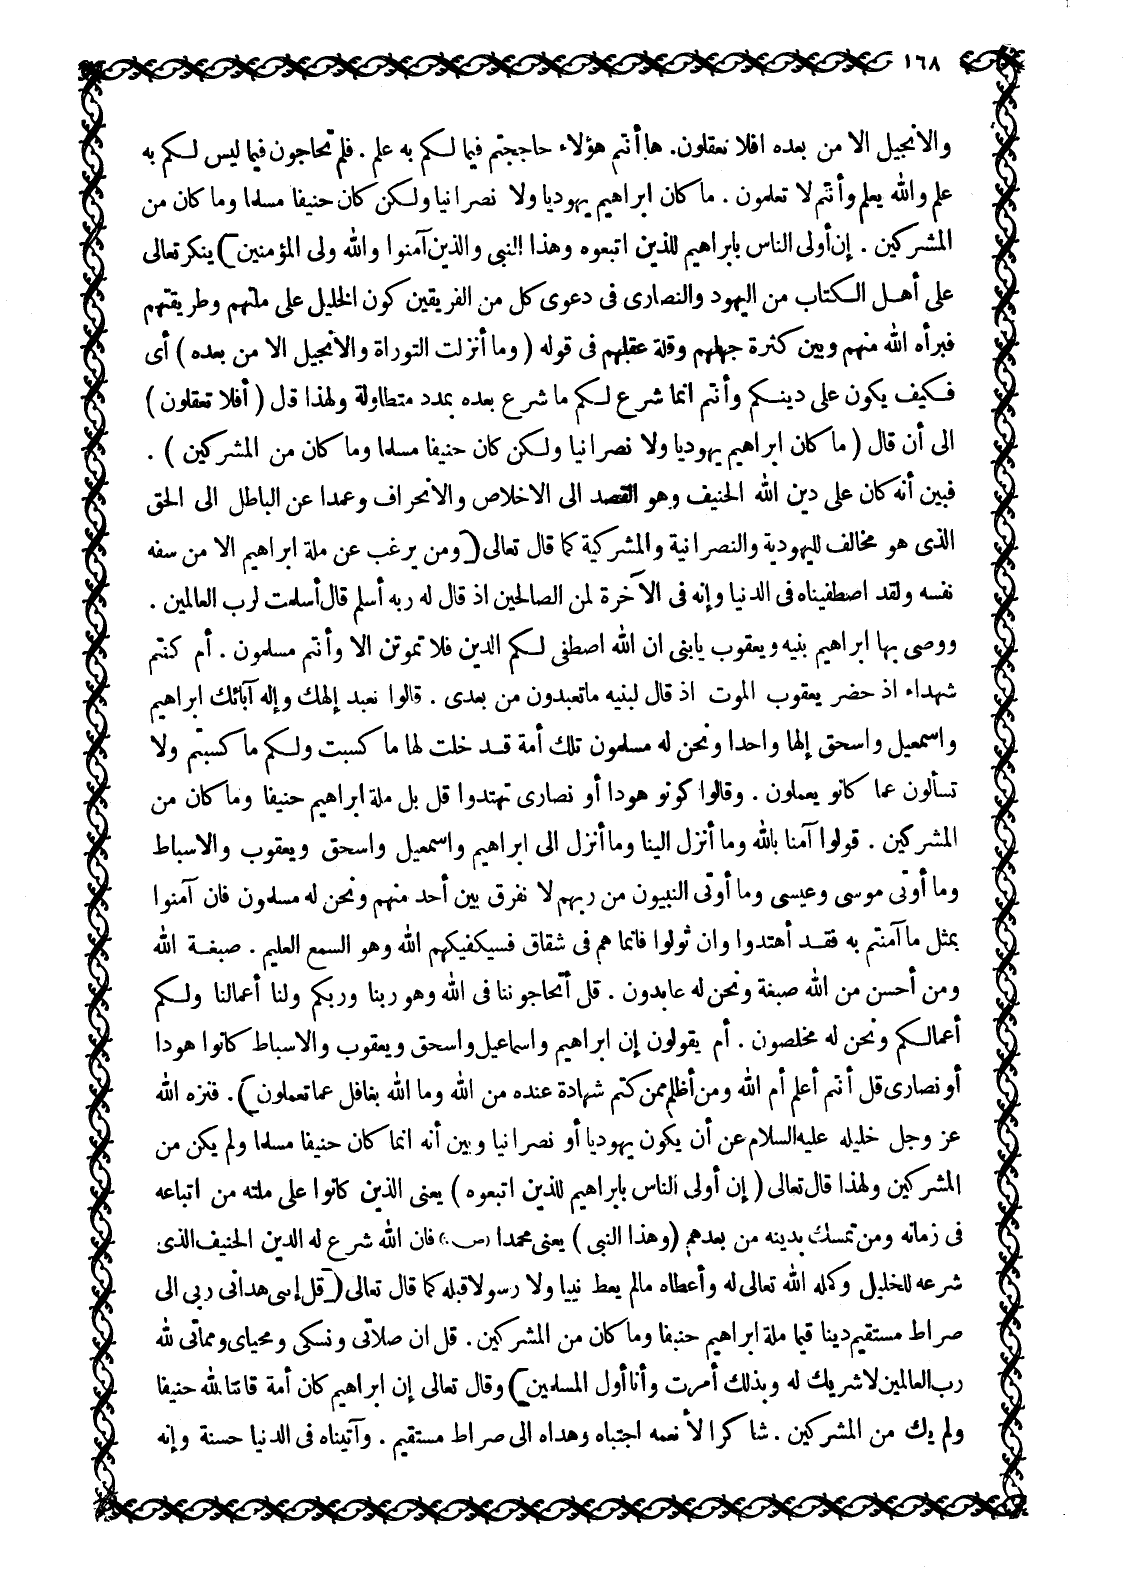 ١٦٨
والانجيل الا من بعده افلا نعقلون. هاأنتم هؤلاء حاججتم فيما لكم به علم . فلم تحاجون فيما ليس لكم به
علم والله يعلم وأنتم لا تعلمون . ما كان ابراهيم يهوديا ولا نصرانيا ولكن كان حنيفا مسلما وما كان من
المشركين . إن أولى الناس بابراهيم للذين اتبعوه وهذا النبي والذين آمنوا والله ولى المؤمنين) ينكر تعالى
على أهل الكتاب من اليهود والنصارى فى دعوى كل من الفريقين كون الخليل على ملتهم وطريقتهم
فبرأه الله منهم وبين كثرة جهلهم وقلة عقلهم فى قوله ( وما أنزلت التوراة والانجيل الا من بعده ) أى
فكيف يكون على دينكم وأنتم انما شرع لكم ما شرع بعده بمدد متطاولة ولهذا قل ( أفلا تعقلون )
الى أن قال ( ما كان ابراهيم يهوديا ولا نصرانيا ولكن كان حنيفا مسلما وما كان من المشركين ) .
فبين أنه كان على دين الله الحنيف وهو القصد الى الاخلاص والانحراف وعمدا عن الباطل الى الحق
الذى هو مخالف لليهودية والنصرانية والمشركية كما قال تعالى (ومن يرغب عن ملة ابراهيم الا من سفه
نفسه ولقد اصطفيناه فى الدنيا وإنه فى الآخرة لمن الصالحين اذ قال له ربه أسلم قال أسلمت لرب العالمين .
ووصى بها ابراهيم بنيه ويعقوب يابنى ان الله اصطفى لكم الدين فلا تموتن الا وأنتم مسلمون . أم كنتم
شهداء اذ حضر يعقوب الموت اذ قال لبنيه ماتعبدون من بعدى . قالوا نعبد إلهك وإله آبائك ابراهيم
واسمعيل واسحق إلها واحدا ونحن له مسلمون تلك أمة قد خلت لها ما كسبت ولكم ما كسبتم ولا
تسألون عما كانو يعملون . وقالوا كونو هودا أو نصارى تهتدوا قل بل ملة ابراهيم حنيفا وما كان من
المشركين . قولوا آمنا بالله وما أنزل الينا وما أنزل الى ابراهيم واسمعيل واسحق ويعقوب والاسباط
وما أوتى موسى وعيسى وما أوتى النبيون من ربهم لا نفرق بين أحد منهم ونحن له مسلمون فان آمنوا
بمثل ما آمنتم به فقد أهتدوا وان ثولوا فانما هم فى شقاق فسيكفيكهم الله وهو السمع العليم . صبغة الله
ومن أحسن من الله صبغة ونحن له عابدون . قل أتحاجوننا فى الله وهو ربنا وربكم ولنا أعمالنا ولكم
أعمالكم ونحن له مخلصون . أم يقولون إن ابراهيم واسماعيل واسحق ويعقوب والاسباط كانوا هودا
أو نصارى قل أنتم أعلم أم الله ومن أظلم ممن كتم شهادة عنده من الله وما الله بغافل عما تعملون) . فنزه الله
عز وجل خليله عليه السلام عن أن يكون يهوديا أو نصرانيا وبين أنه انما كان حنيفا مسلما ولم يكن من
المشركين ولهذا قال تعالى ( إن أولى الناس بابراهيم للذين اتبعوه ) يعنى الذين كانوا على ملته من اتباعه
فى زمانه ومن تمسك بدينه من بعدهم (وهذا النبى ) يعنى محمدا (ص) فان الله شرع له الدين الحنيف الذى
شرعه للخليل وكمله الله تعالى له وأعطاه مالم يعط نبيا ولا رسولا قبله كما قال تعالى ( قل إننى هدانى ربى الى
صراط مستقيم دينا قيما ملة ابراهيم حنيفا وما كان من المشركين . قل ان صلاتى ونسكى ومحياى ومماتى لله
رب العالمين لا شريك له وبذلك أمرت وأنا أول المسلمين ) وقال تعالى إن ابراهيم كان أمة قانتا لله حنيفا
ولم يك من المشركين . شاكرا لأنعمه اجتباه وهداه الى صراط مستقيم . وآتيناه فى الدنيا حسنة وإنه